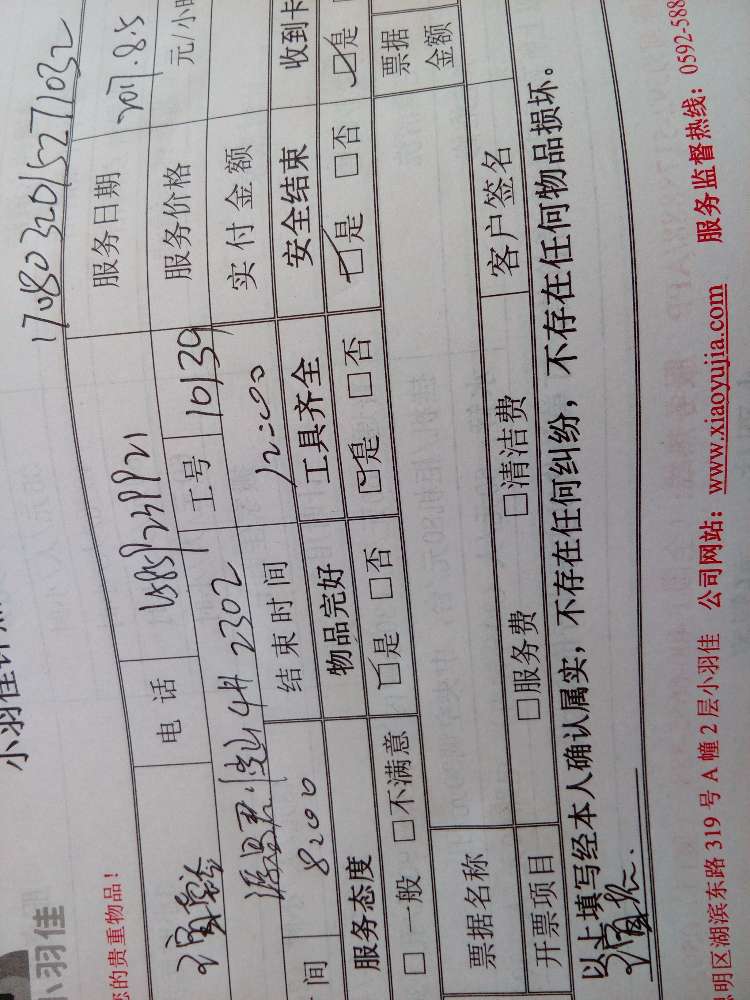 小羽佳
1708032015271032
您的贵重物品！
电话
服务日期 2017.8.5
工号 10139 服务价格 元/小时
4# 2302 实付金额
间 8:00 结束时间 12:00
服务态度 物品完好 工具齐全 安全结束 收到卡
□一般 □不满意 □是 □否 □是 □否 □是 □否 □是
票据名称 票据金额
开票项目 □服务费 □清洁费 客户签名
以上填写经本人确认属实，不存在任何纠纷，不存在任何物品损坏。
明区湖滨东路 319 号 A 幢 2 层小羽佳 公司网站：www.xiaoyujia.com 服务监督热线：0592-588